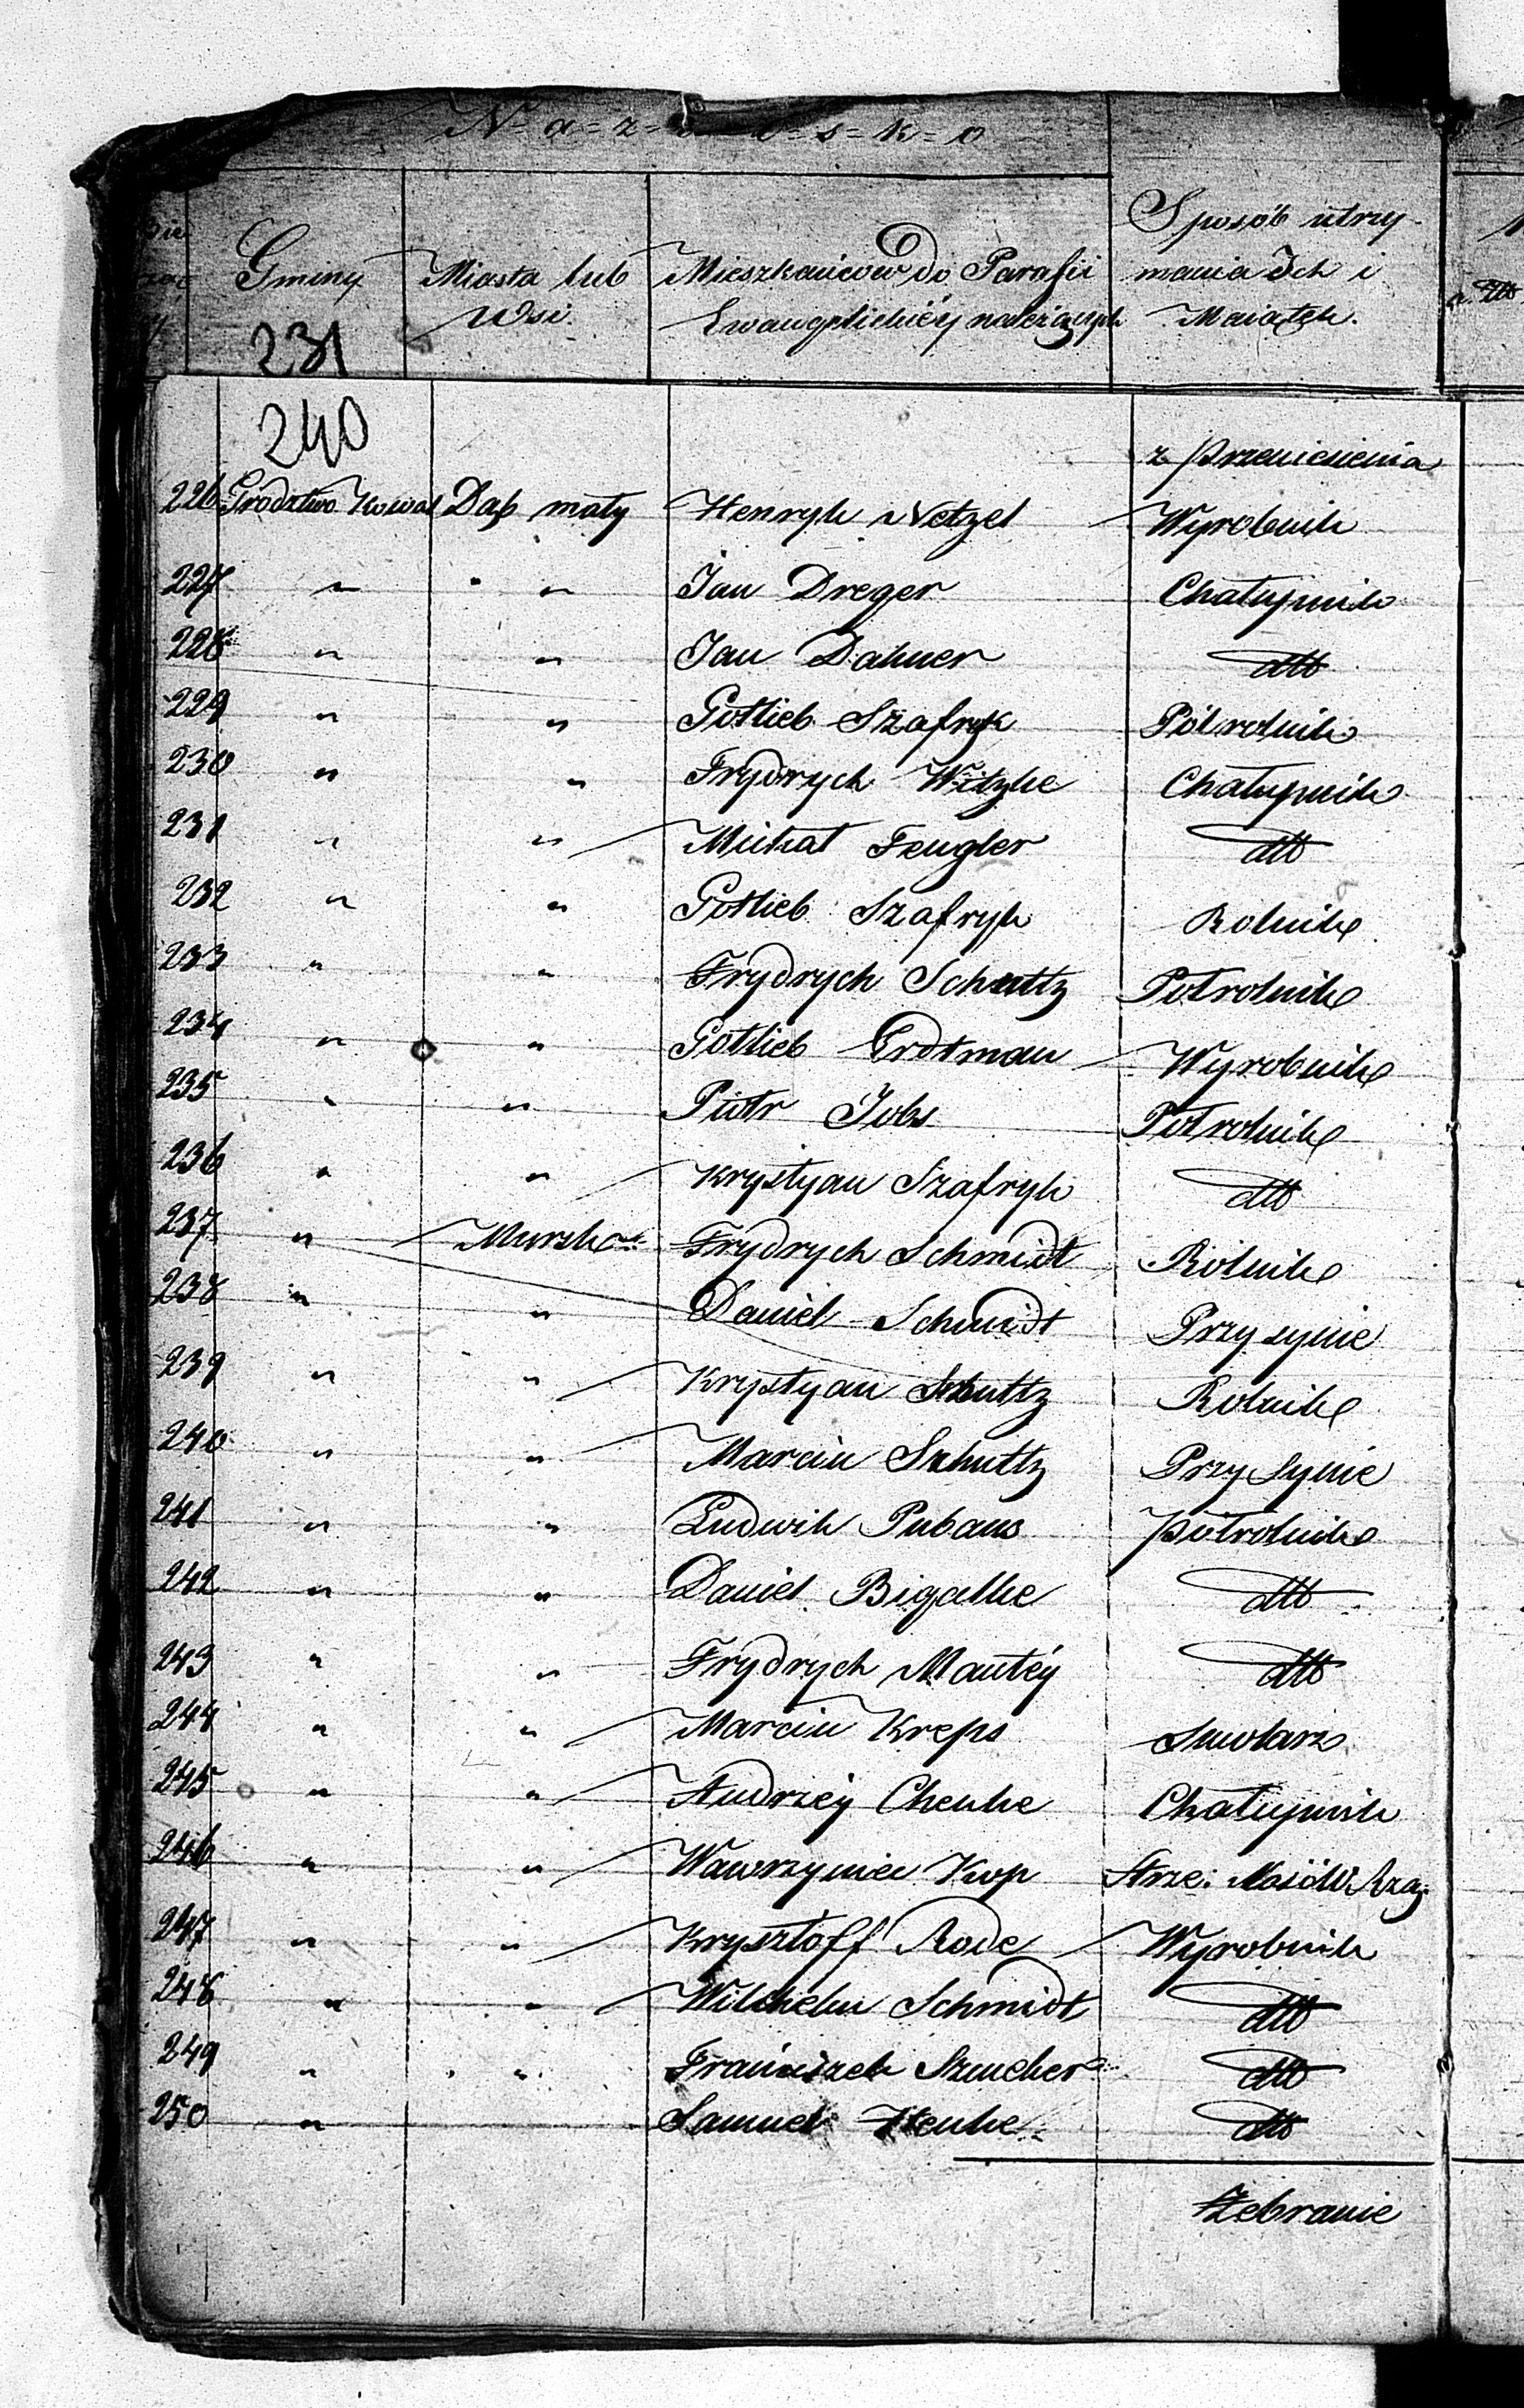 N=a=z=w=i=s=k=o
Gminy
Miasta lub
Wsi.
Mieszkańców do Parafii
Ewangelickiéy należących
Sposób utrzy-
mania Ich i
Maiątek.
231
240
z Przeniesienia
226 Grodztwo Kowal Dąb mały Henryk Netzel Wyrobnik
227 " " " Jan Dreger Chałupnik
228 " " Jan Dahner dtto
229 " " Gotlieb Szafryk Półrolnik
230 " " Frydrych Witzke Chałupnik
231 " " Michał Fengler dtto
232 " " Gotlieb Szafryk Rolnik
233 " " Frydrych Schultz Półrolnik
234 " " Gotlieb Erdtman Wyrobnik
235 " " Piotr Jobs Półrolnik
236 " " Krystyan Szafryk dtto
237 " Mursk Frydrych Schmidt Rolnik
238 " " Daniel Schmidt Przy synie
239 " " Krystyan Schultz Rolnik
240 " " Marcin Schultz Przy Synie
241 " " Ludwik Pubans Półrolnik
242 " " Daniel Bigalke dtto
243 " " Frydrych Mantéy dtto
244 " " Marcin Kreps Smolarz
245 " " Andrzéy Chenke Chałupnik
246 " " Wawrzyniec Kop Strze:
247 " " Krysztoff Rode Wyrobnik
248 " " Wilchelm Schmidt dtto
249 " " Franciszek Szmelcer dtto
250 " Samuel Henke dtto
Zebranie